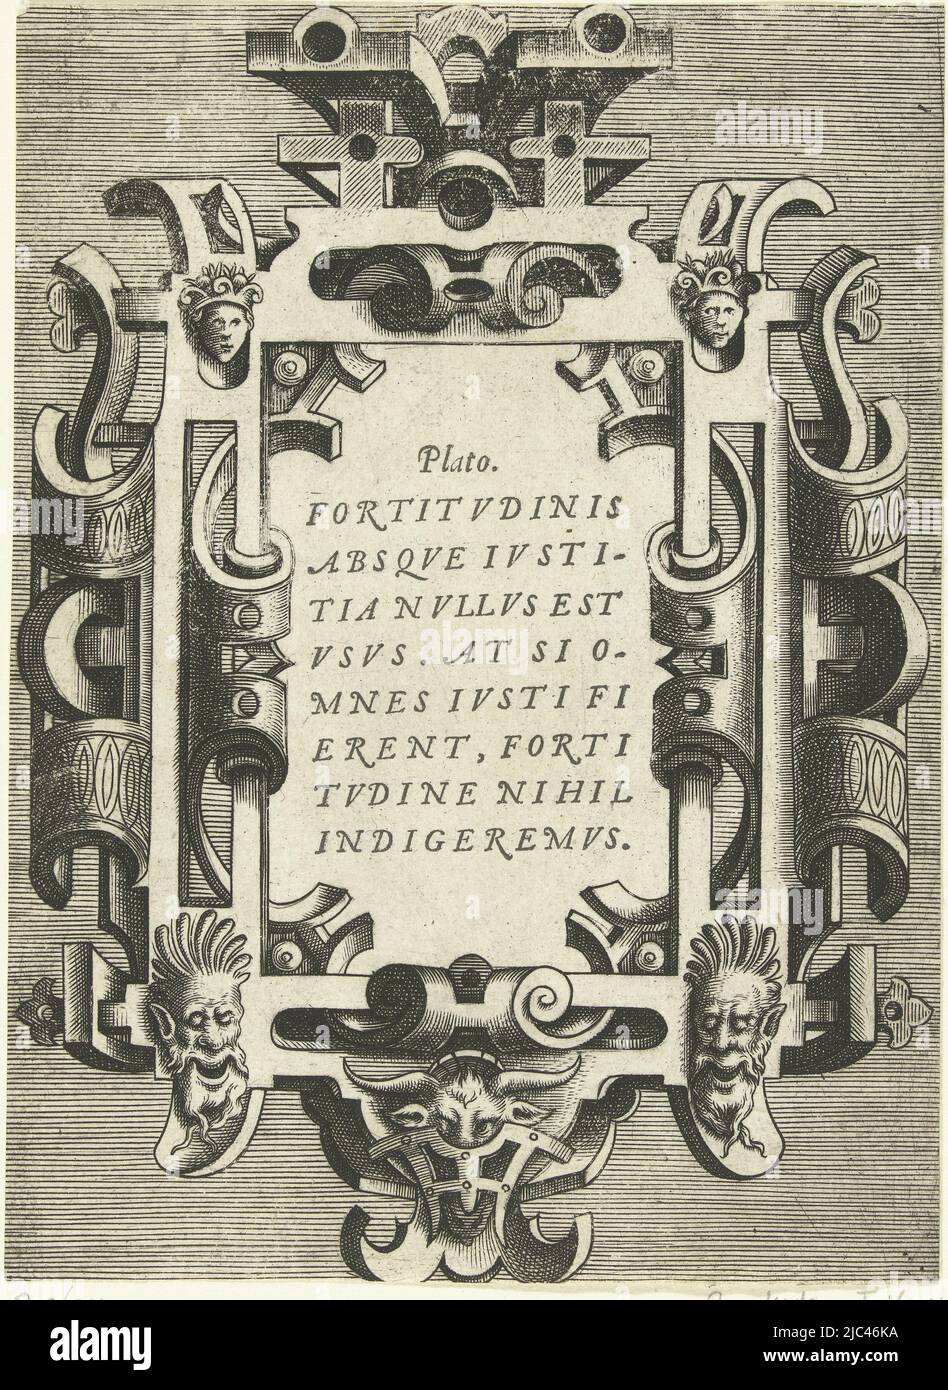 Plato.
FORTITVDINIS
ABSQVE IVSTI-
TIA NVLLVS EST
VSVS. AT SI O-
MNES IVSTI FI
ERENT, FORTI
TVDINE NIHIL
INDIGEREMVS.
alamy
Image ID: 2JC46KA
www.alamy.com